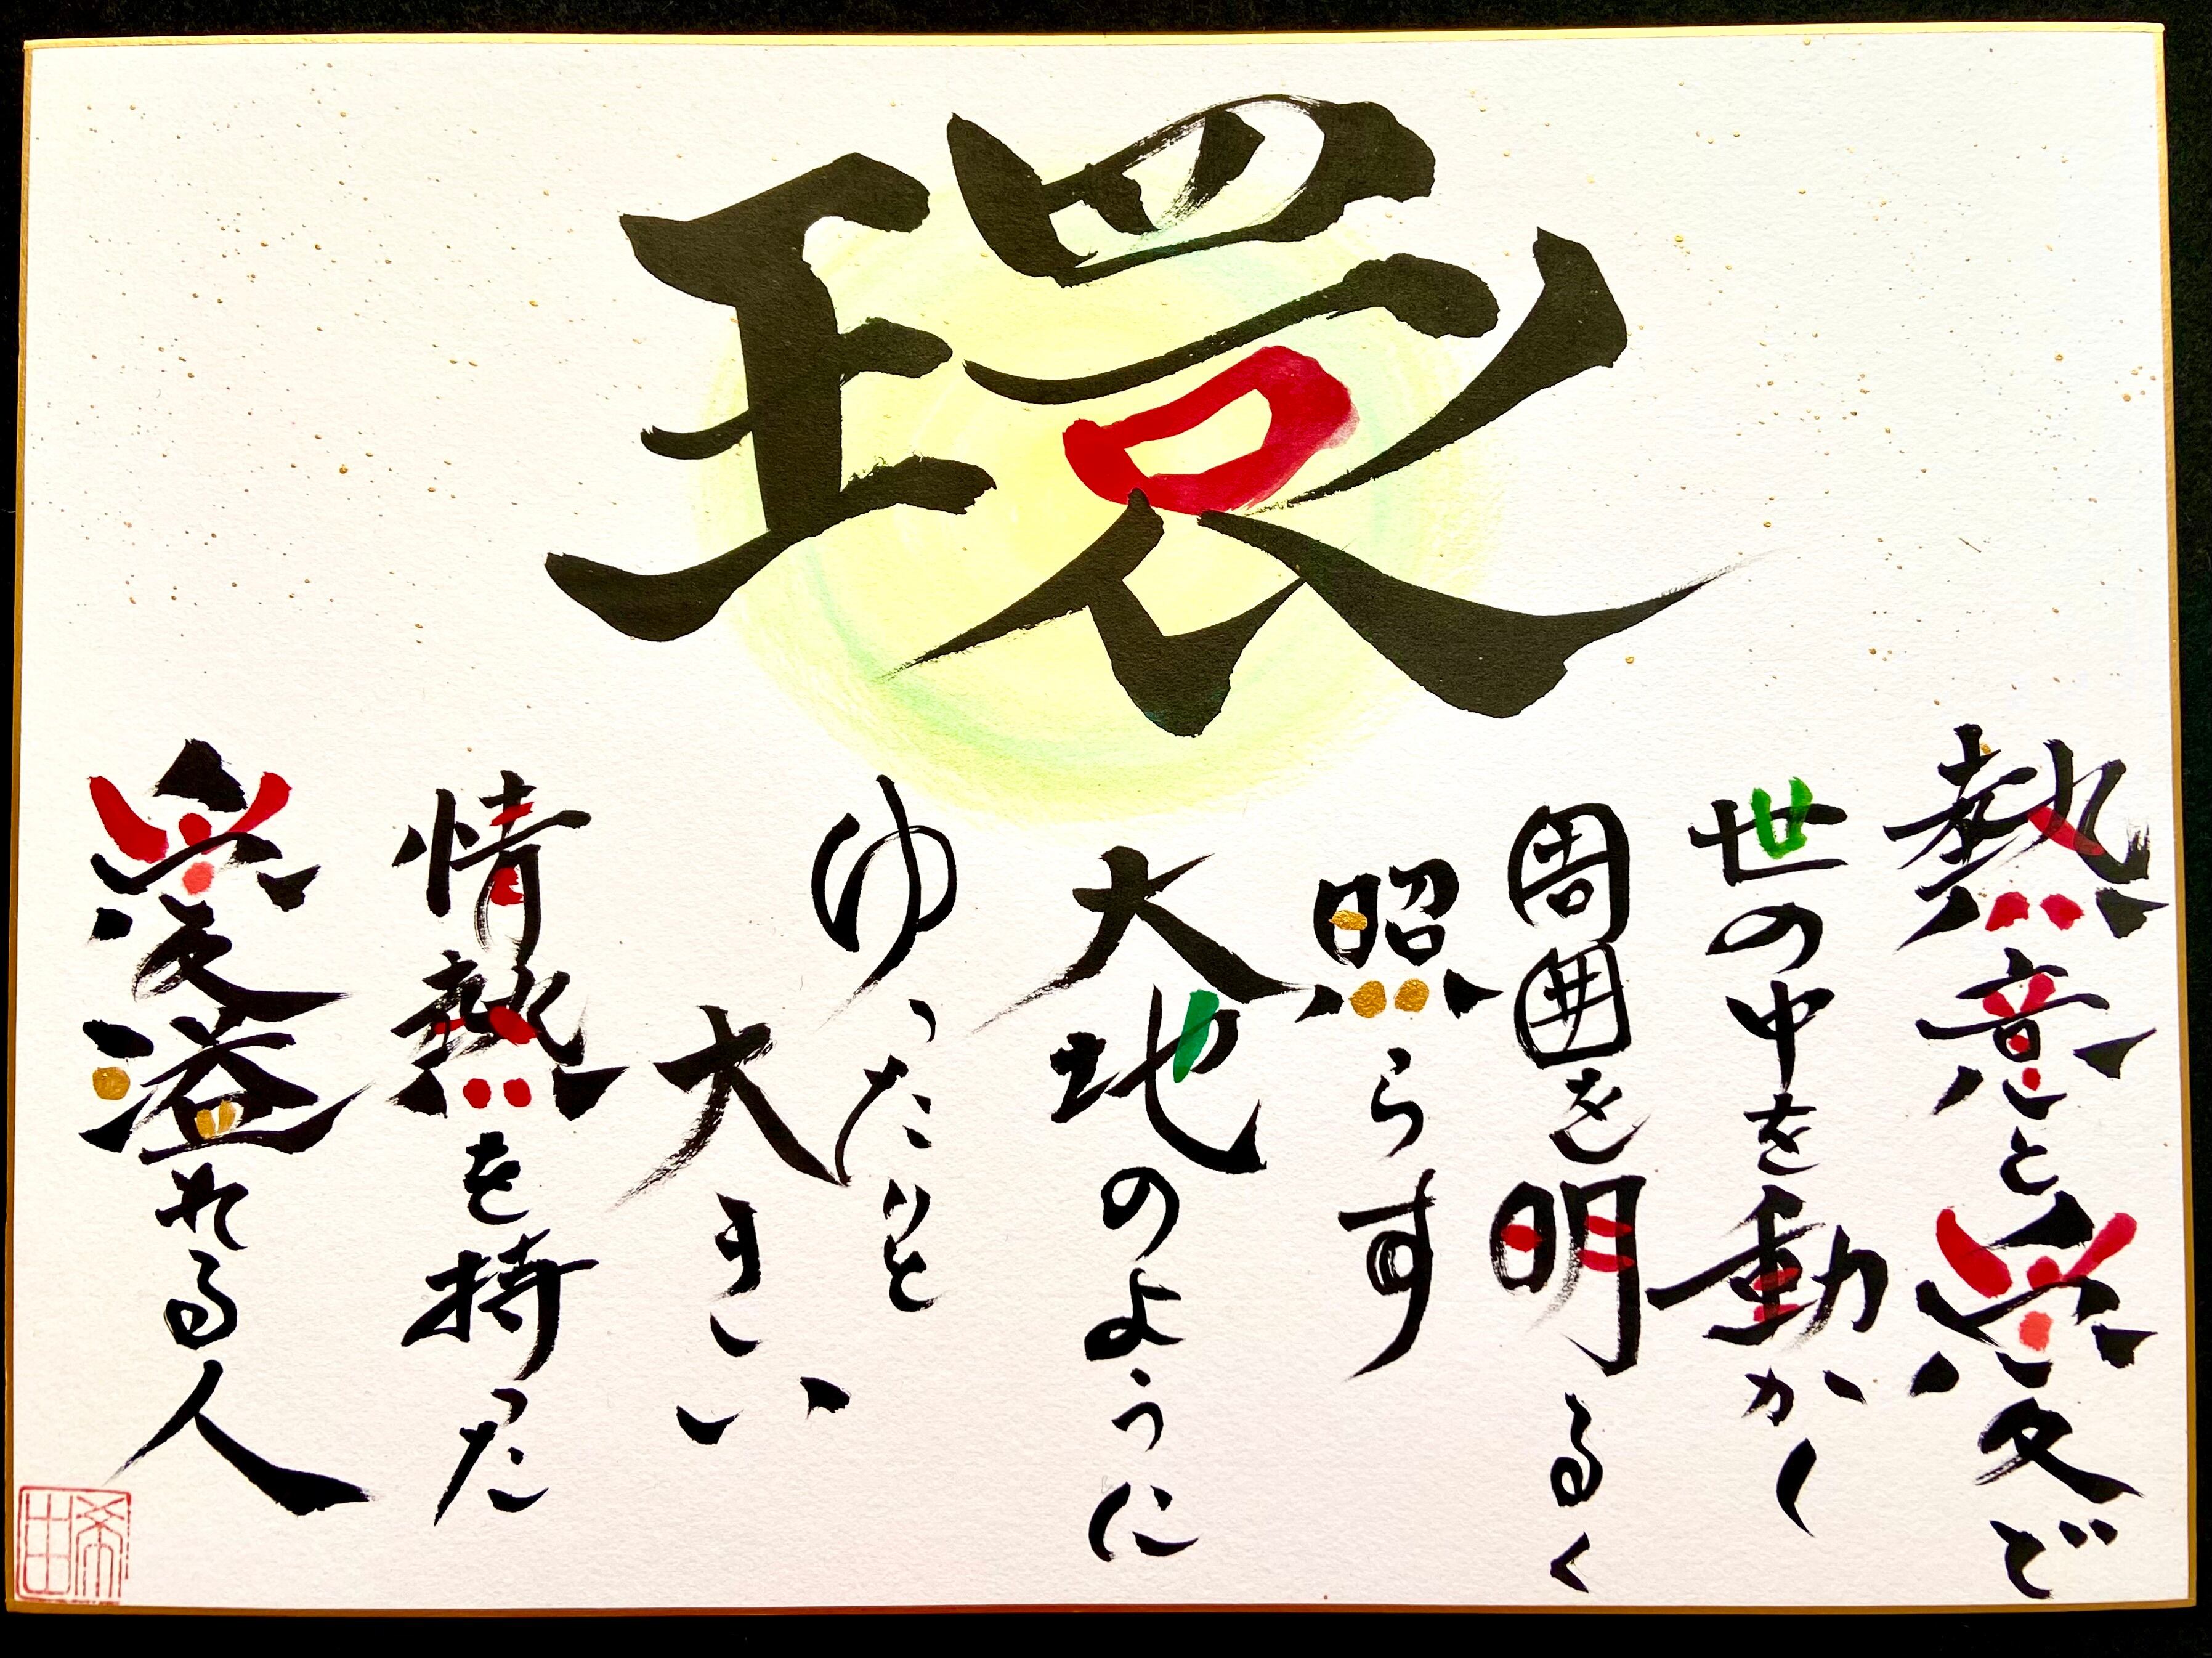 環
熱意と愛で
世の中を動かし
周囲を明るく
照らす
大地のように
ゆったりと
大きい
情熱を持った
愛溢れる人